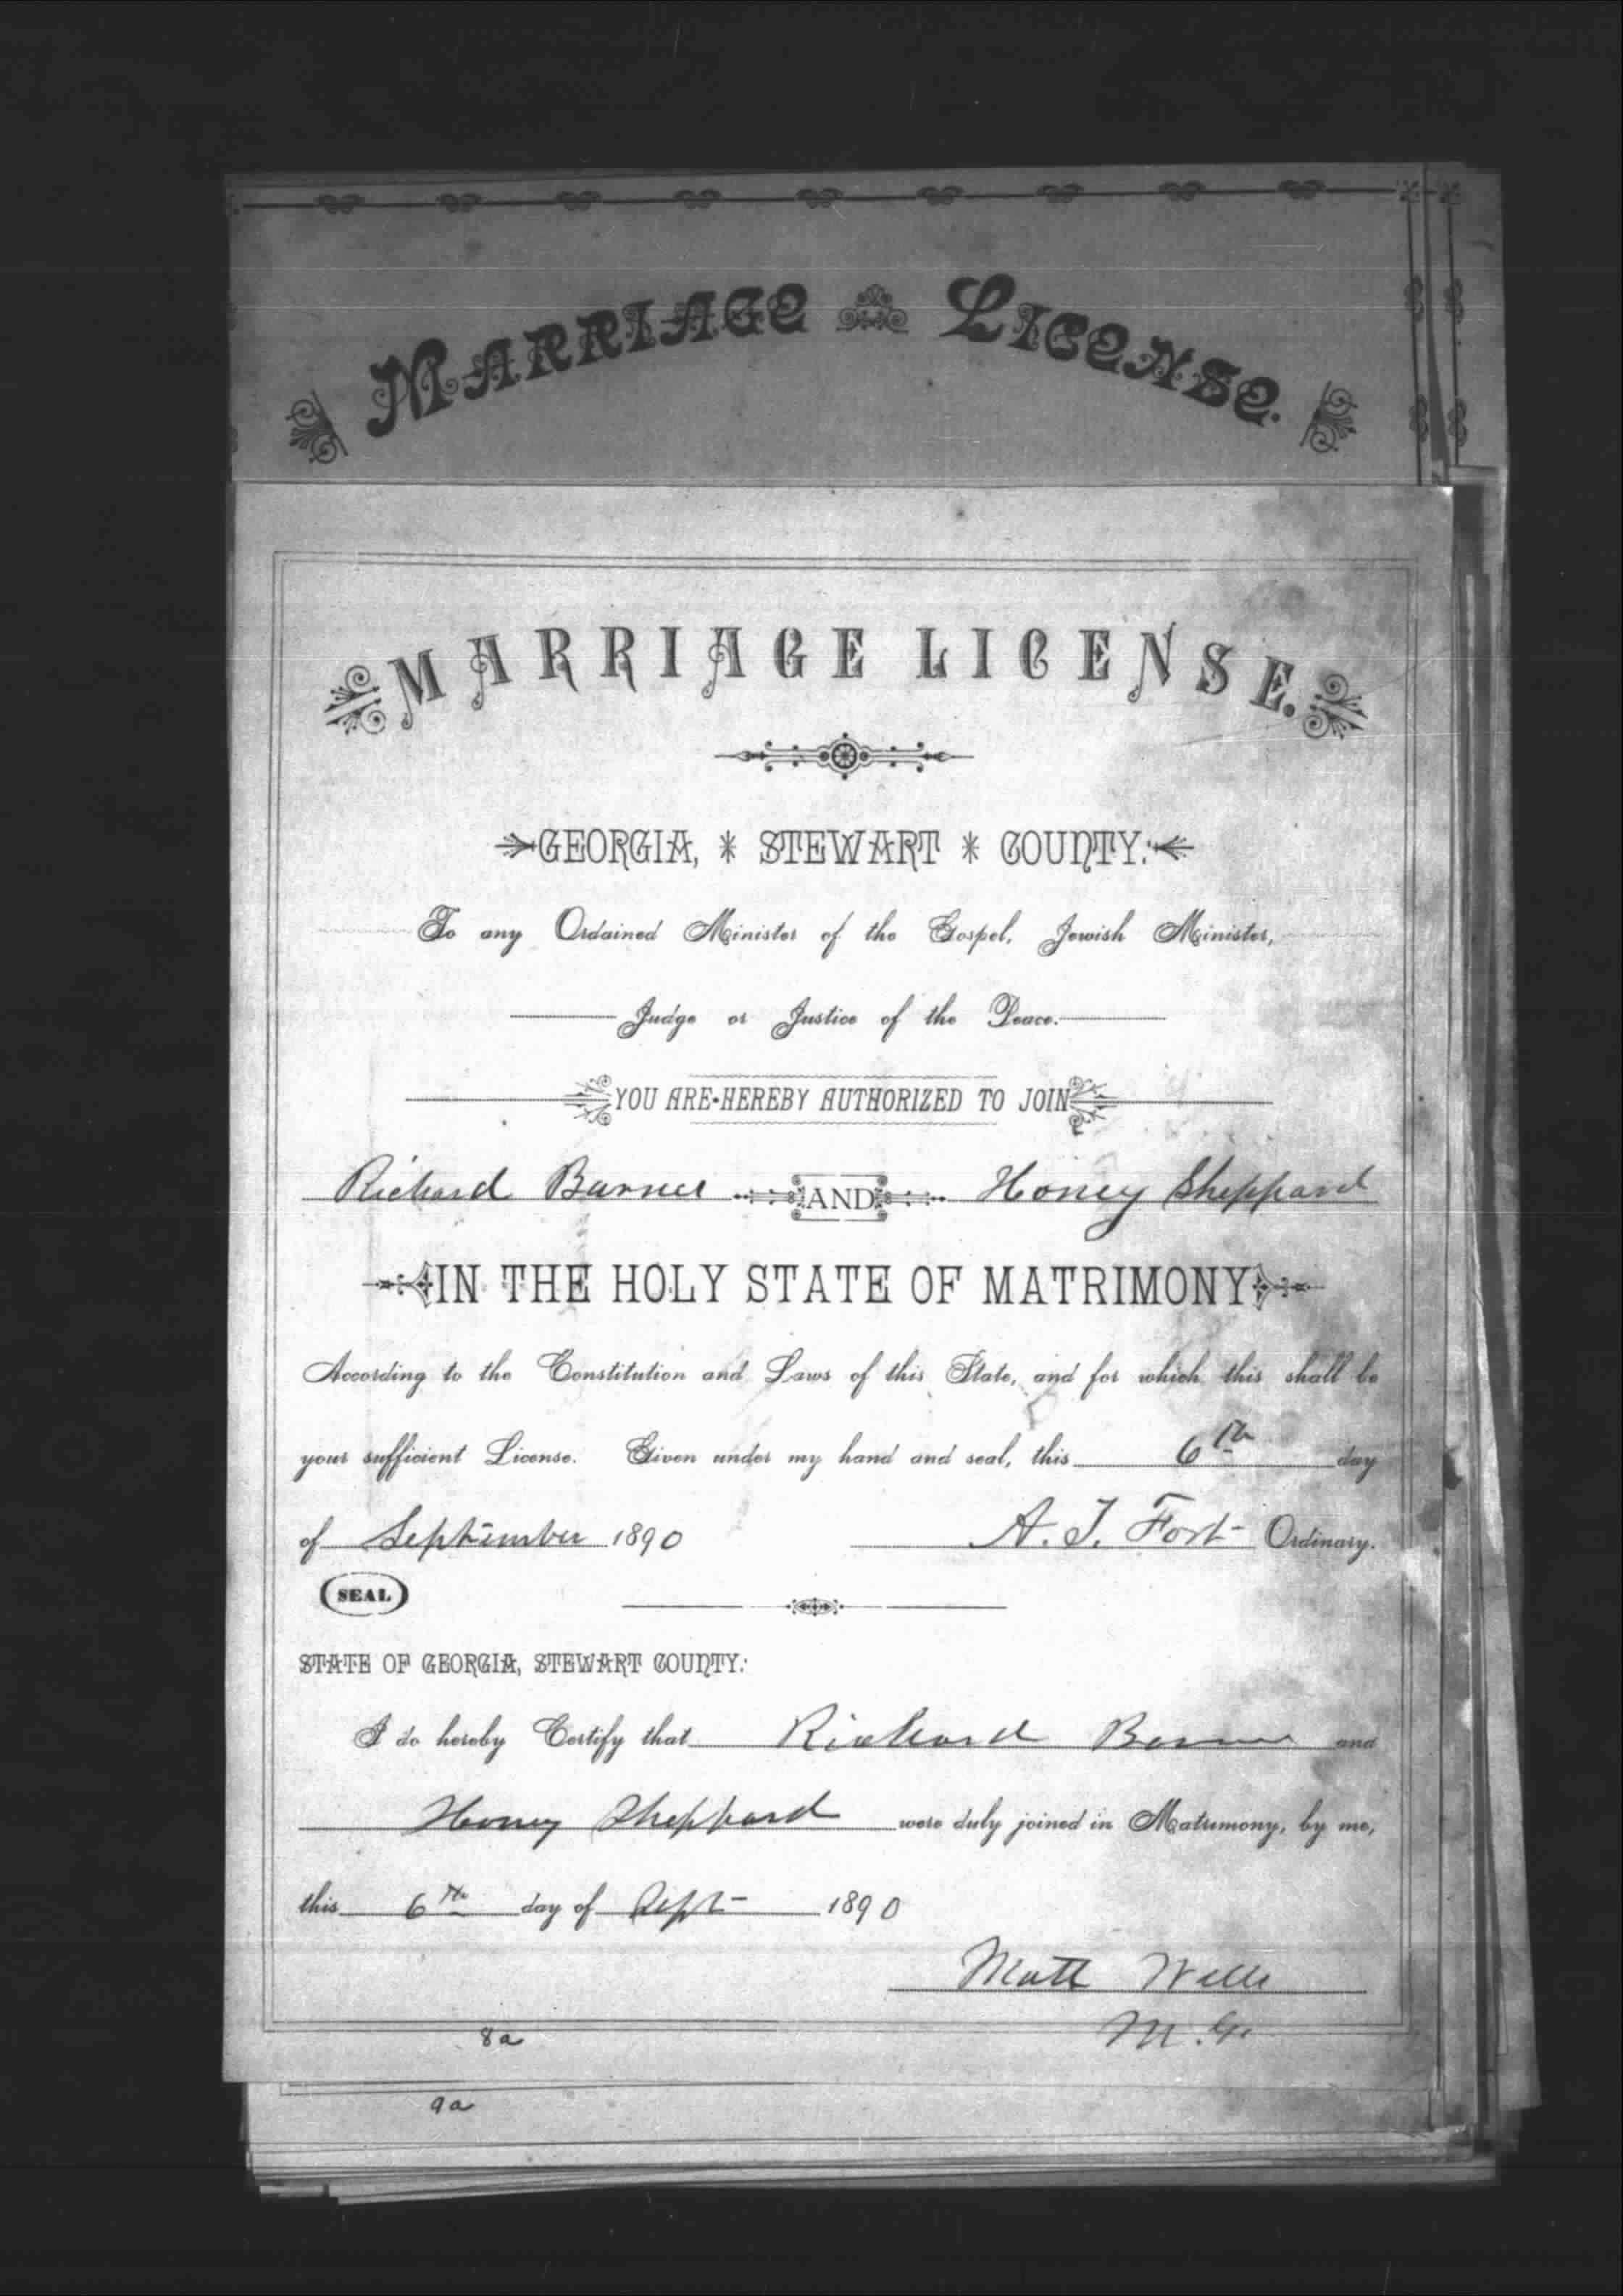 MARRIAGE LICENSE.
MARRIAGE LICENSE.
GEORGIA, * STEWART * COUNTY:
To any Ordained Minister of the Gospel, Jewish Minister,
Judge or Justice of the Peace.
YOU ARE HEREBY AUTHORIZED TO JOIN
Richard Barnes AND Honey Sheppard
IN THE HOLY STATE OF MATRIMONY
According to the Constitution and Laws of this State, and for which this shall be
your sufficient License. Given under my hand and seal, this 6th day
of September 1890 A. T. Fort Ordinary.
(SEAL)
STATE OF GEORGIA, STEWART COUNTY:
I do hereby Certify that Richard Barnes and
Honey Sheppard were duly joined in Matrimony, by me,
this 6th day of Sept 1890
Matt Wells
M. G.
8a
9a